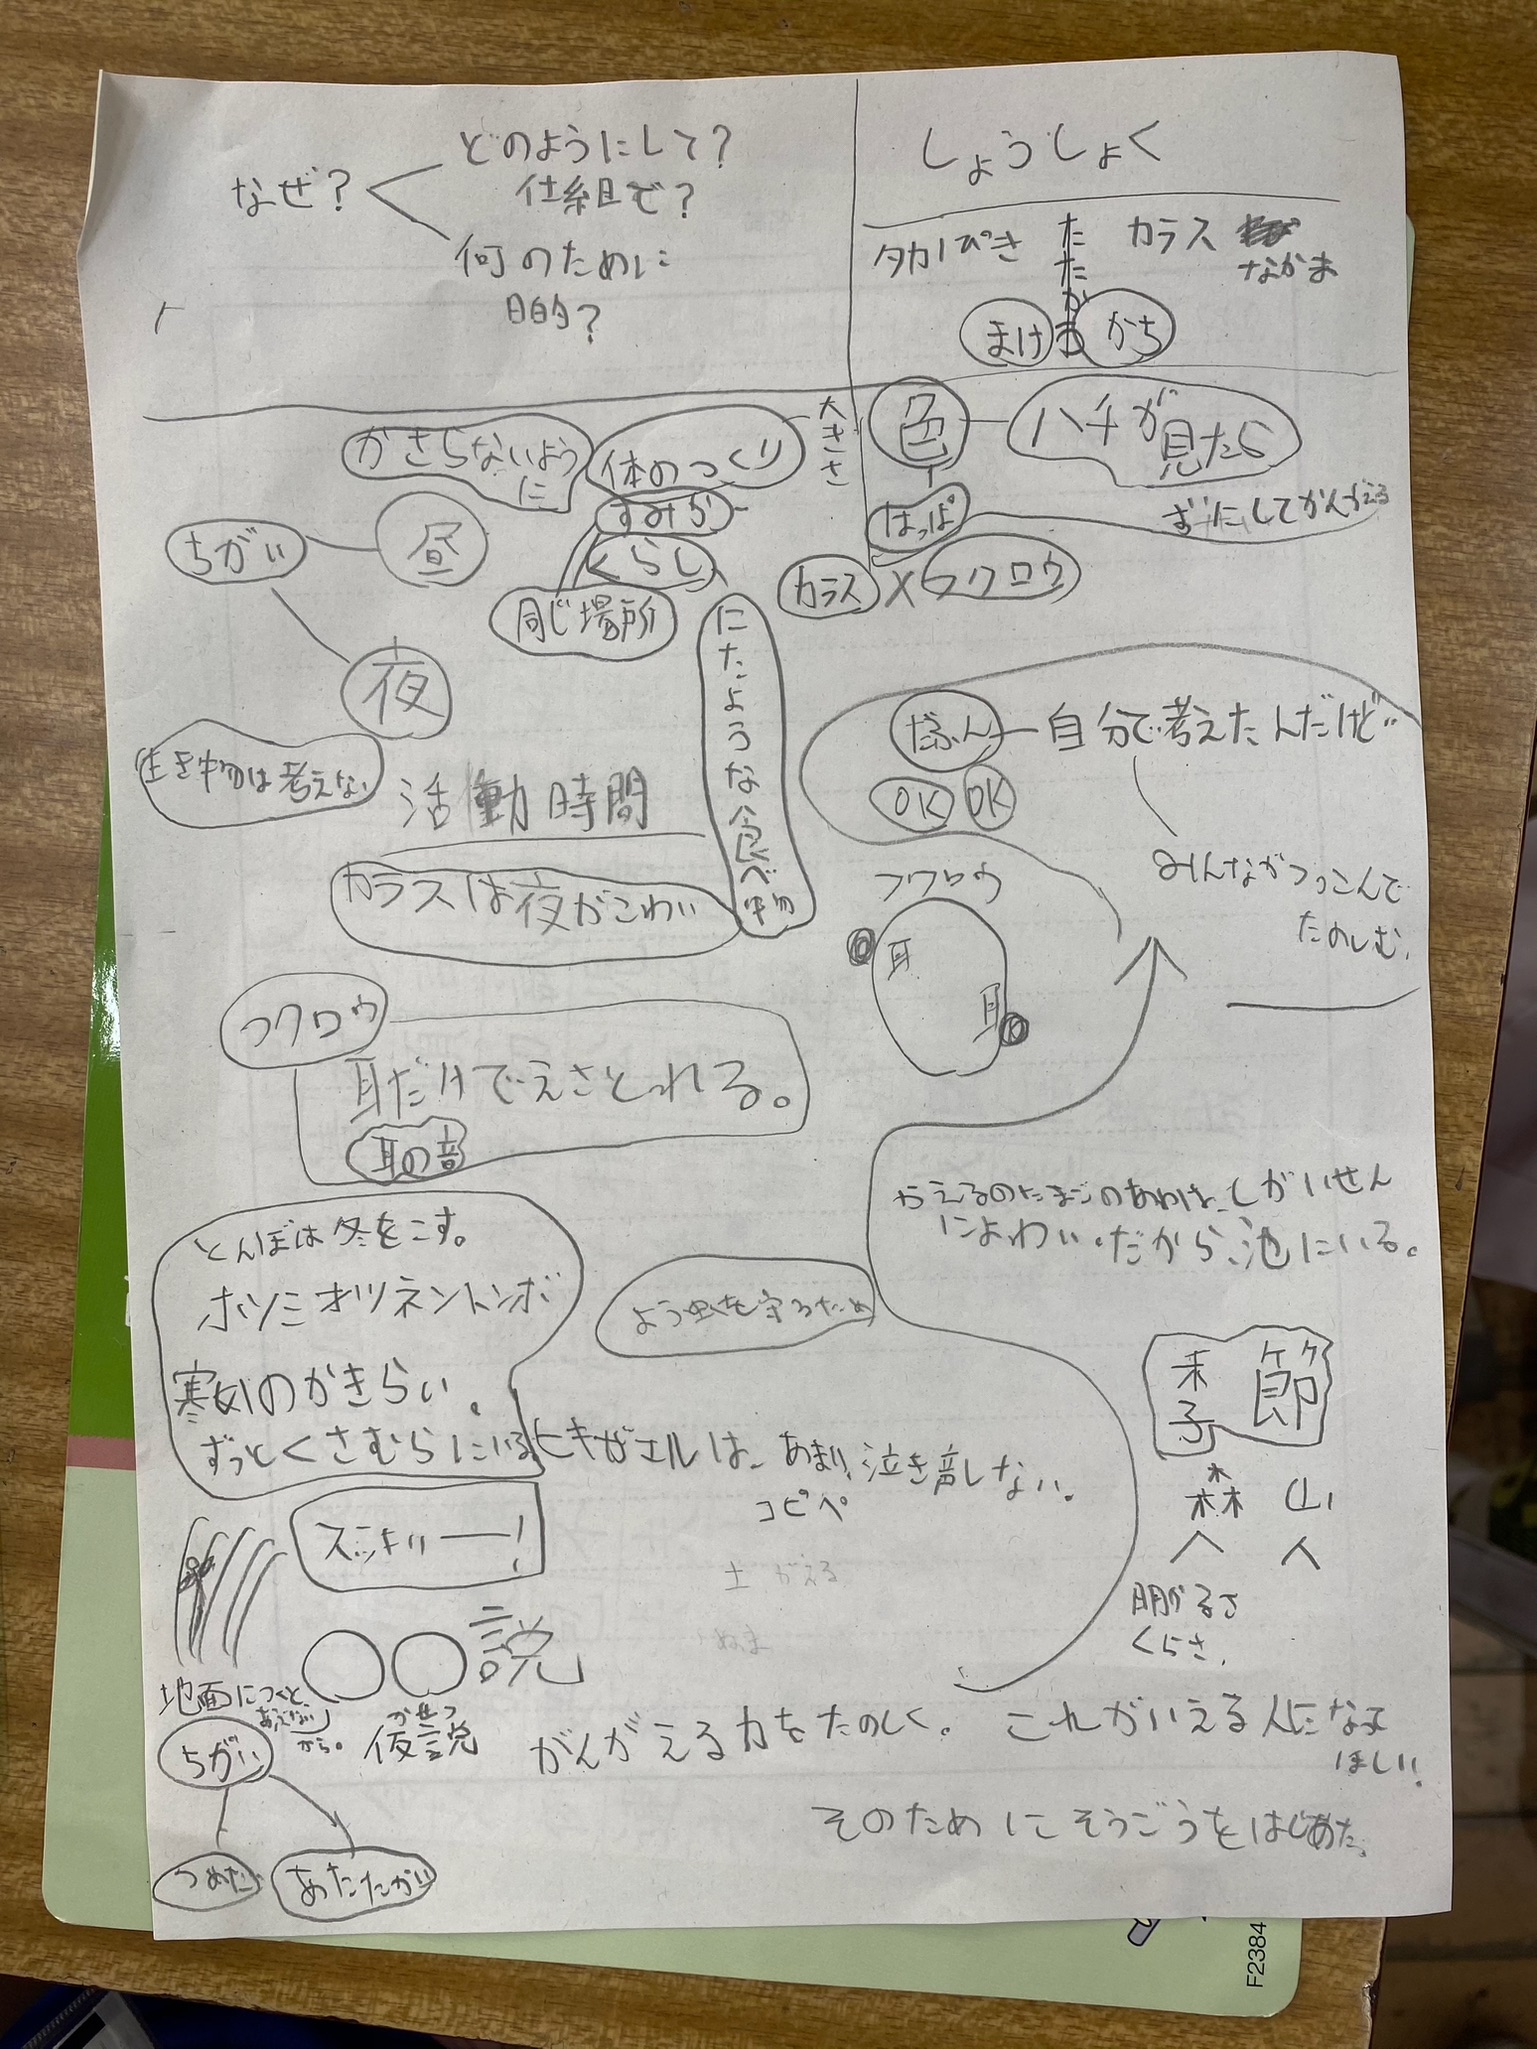 なぜ?
どのようにして?
仕組で?
何のために
目的?
しょうしょく
タカ1ぴき
たたかう
カラス
なかま
まけ
かち
かさらないように
体のつくり
大きさ
すみか
くらし
同じ場所
ちがい
昼
夜
色
ハチが
見たら
はっぱ
ずにしてかんがえる
カラス
×
フクロウ
にたような食べ物
生き物は考えない
活動時間
カラスは夜がこわい
たぶん
自分で考えたんだけど
OK
OK
みんながつっこんで
たのしむ.
フクロウ
耳
耳
フクロウ
耳だけでえさとれる。
耳の音
かえるのたまごのあわは、しがいせん
によわい.だから、池にいる。
とんぼは冬をこす。
ホソミオツネントンボ
寒いのがきらい。
ずっとくさむらにいる
よう虫を守るため
ヒキガエルは、あまり泣き声しない。
コピペ
季節
森
山
人
人
明かるさ
くらさ.
スッキリー!
土がえる
ぬま
〇〇説
地面につくと
あぶないから。
かせつ
仮説
がんがえる力をたのしく。
これがいえる人になって
ほしい!
そのためにそうごうをはじめた。
ちがい
つめたい
あたたかい
F2384